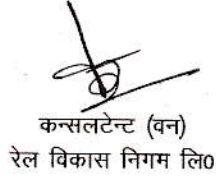 कन्सलटेन्ट (वन)
रेल विकास निगम लि0